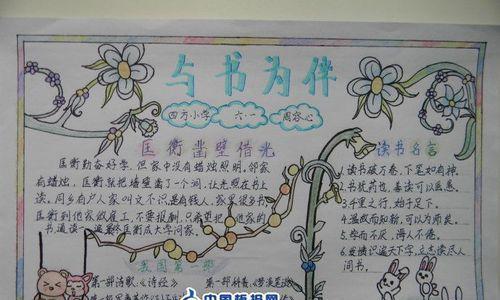 与书为伴
四方小学 六·一 周容心
匡衡凿壁借光
匡衡勤奋好学,但家中没有蜡烛照明,邻家
有蜡烛,匡衡就把墙壁凿了一个洞,让光照在书上
读。同乡有户人家叫文不识,是有钱人,家里很多书
匡衡到他家做雇工,不要报酬,只希望把他家的
书通读一遍,最终匡衡成大学问家。
读书名言
1.读书破万卷,下笔如有神。
2.书犹药也,善读可以医愚。
3.千里之行,始于足下。
4.温故而知新,可以为师矣。
5.学而不厌,诲人不倦。
6.发愤识遍天下字,立志读尽人
间书。
我国第一部
第一部诗歌《诗经》
第一部科普《梦溪笔谈》
中国板报网